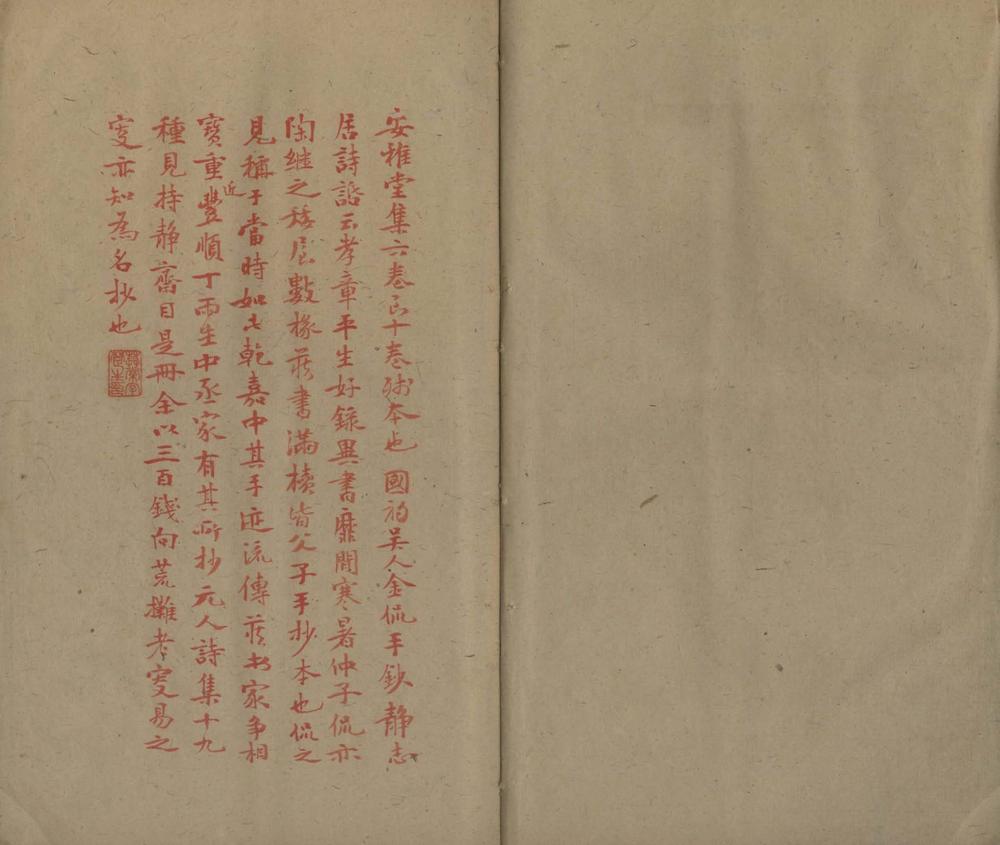 安雅堂集六卷足十卷殘本也國初吳人金侃手鈔靜志
居詩話云孝章平生好錄異書靡間寒暑仲子侃亦
陶継之矮屋數椽藏書滿櫝皆父子手抄本也侃之
見稱于當時如此乾嘉中其手迹流傳藏书家争相
寶重近豐順丁雨生中丞家有其所抄元人詩集十九
種見持静齋目是冊余以三百錢向荒攤老叟易之
叟亦知為名抄也